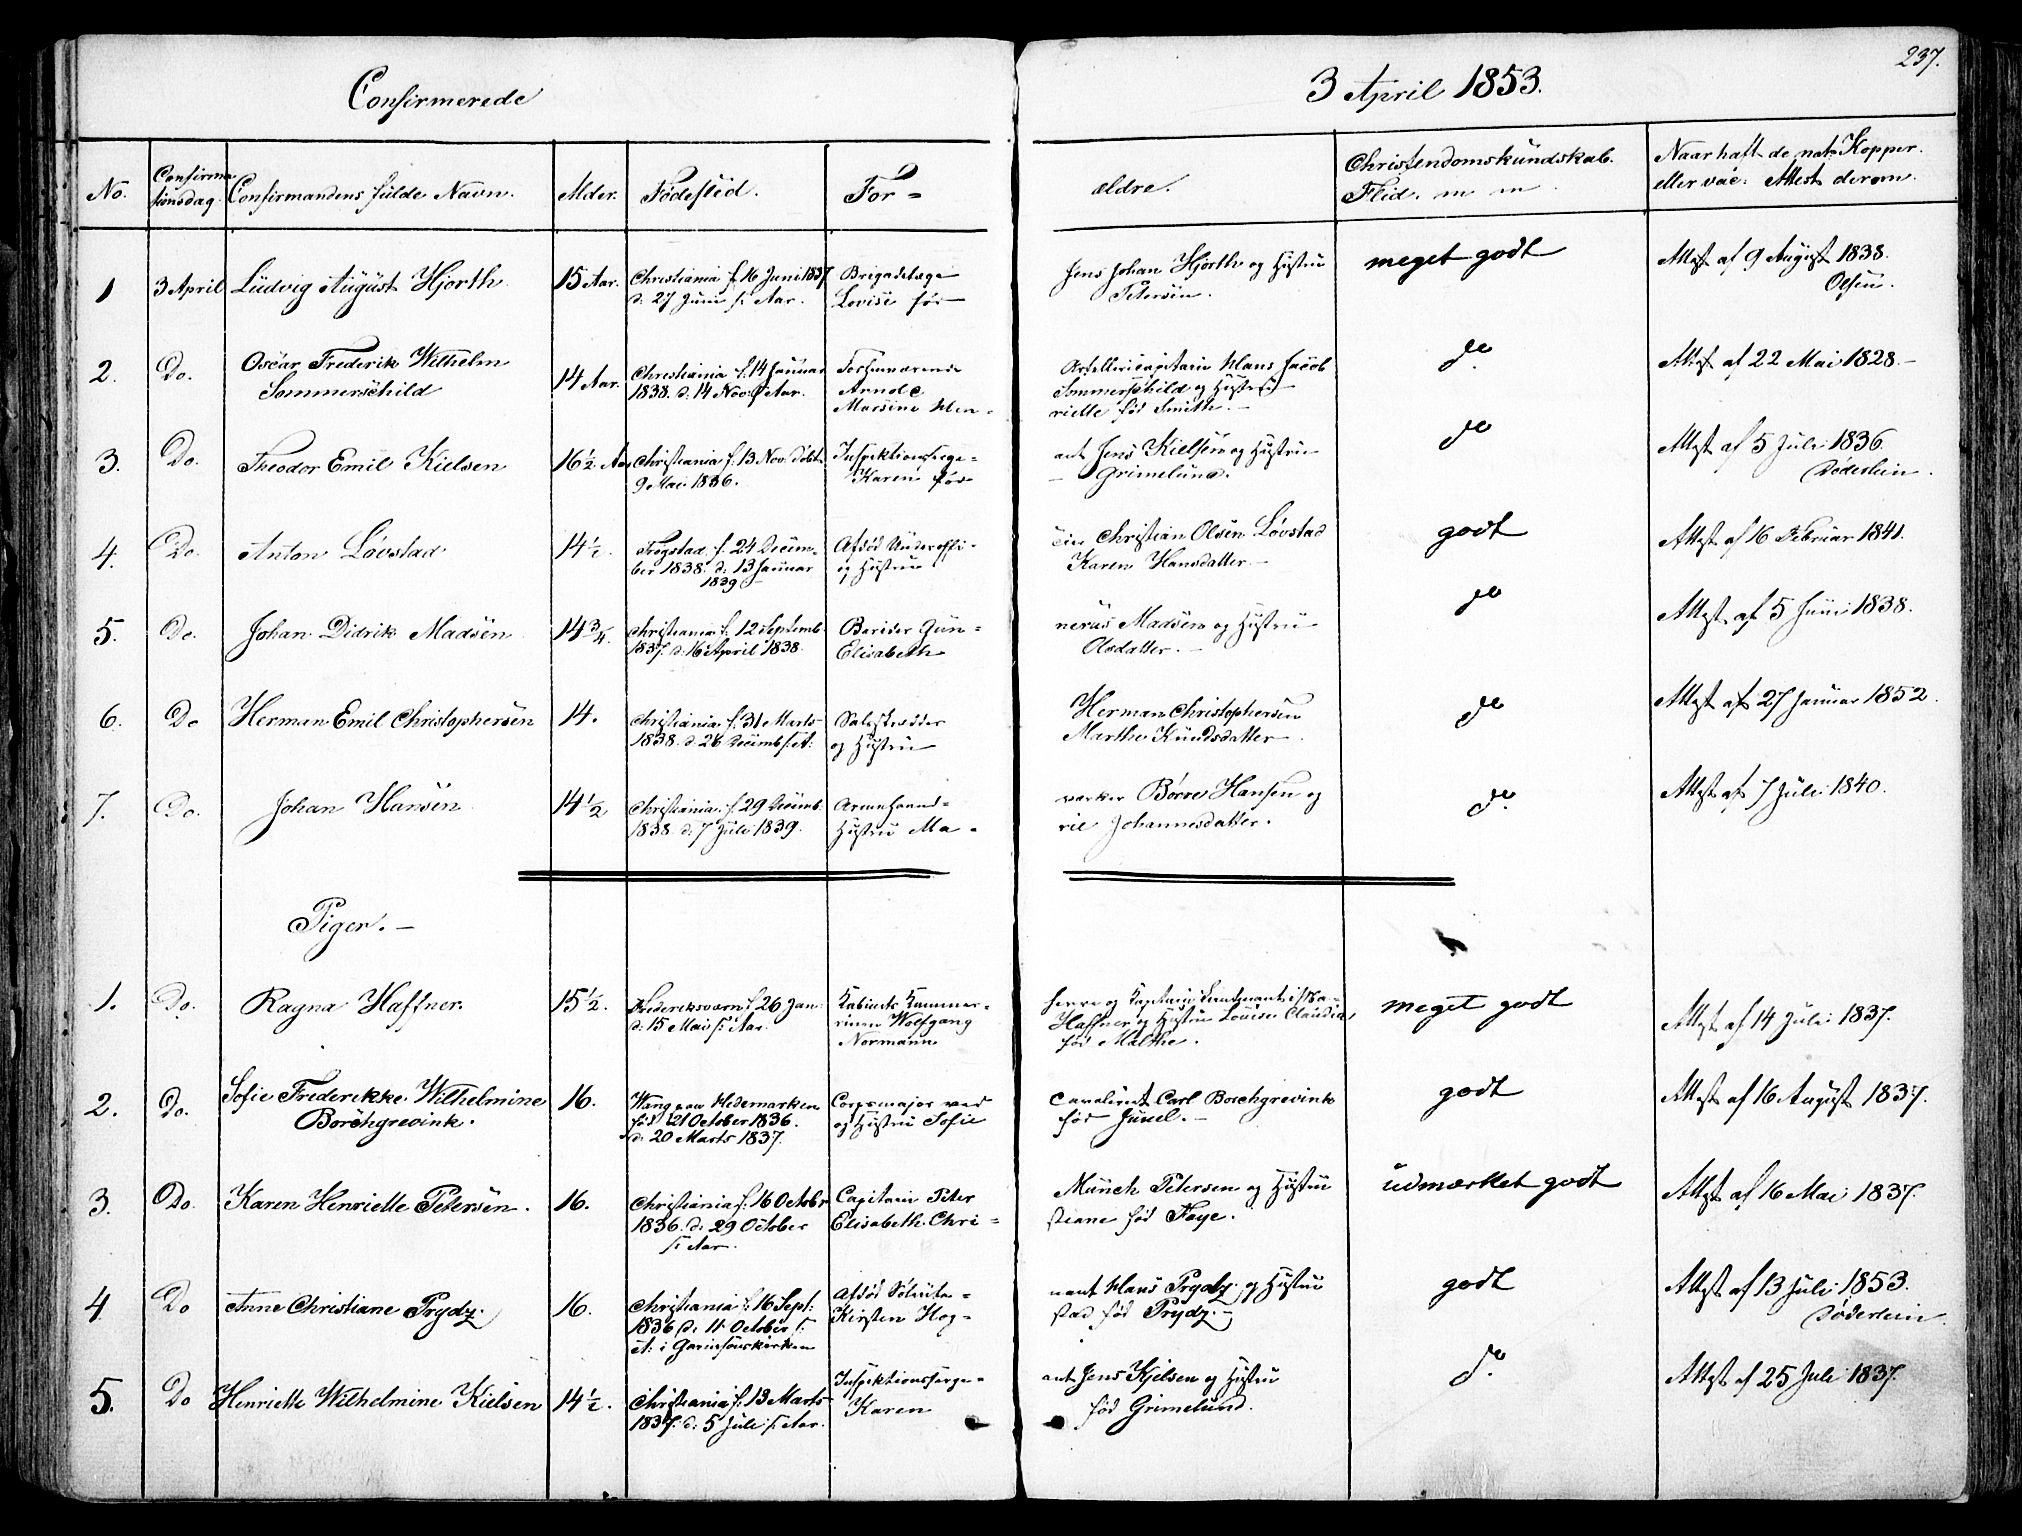 237.
Confirmerede
3 April 1853.
No.
Confirma
tionsdag.
Confirmandens fulde Navn.
Alder.
Fødested.
For =
ældre.
Christendomskundskab.
Flid. m m
Naar haft de nat. Kopper.
eller vac: Attest derom.
1
3 April
Ludvig August Hjorth
15 Aar.
Christiania f. 16 Juni 1837
d. 27 Juni s: Aar.
Brigadelæge
Lovise fød
Jens Johan Hjorth og Hustru
Petersen.
meget godt
Attest af 9 August 1838.
Olsen.
2.
Do.
Oscar Frederik Wilhelm
Sommerschild
14 Aar.
Christiania f: 14 Januar
1838. d. 14 Nov: s. Aar.
Forhenværende
Marsine Hen =
Artellericapitain Hans Jacob
Sommerschild og Hustru
riette fød Smith. -
do
Attest af 22 Mai 1828. -
3.
Do.
Theodor Emil Kielsen
16½ Aar
Christiania f: 13 Nov: døbt
9 Mai 1836.
Inspektionsserge =
Karen fød
ant Jens Kielsen og Hustru
Grimelund.
do
Attest af 5 Juli 1836.
Døderlein.
4.
Do.
Anton Løvstad
14½.
Trygstad f. 24 Decem-
ber 1838. d. 13 Januar
1839 -
Afdød Underoffi -
og Hustru
cer Christian Olsen Løvstad
Karen Hansdatter. -
godt
Attest af 16 Februar 1841.
5.
Do.
Johan Didrik Madsen
14¾.
Christiania f. 12 Septemb.
1837. d. 16 April 1838.
Berider Gun =
Elisabeth
nerus Madsen og Hustru
Olsdatter. -
do
Attest af 5 Juni 1838.
6.
Do
Herman Emil Christophersen
14.
Christiania f. 31 Marts
1838. d. 26 Decemb s. A:
og Hustru
Herman Christophersen
Marthe Knudsdatter.
do
Attest af 27 Januar 1852.
7.
Do.
Johan Hansen
14½
Christiania f. 29 Decemb.
1838. d. 7 Juli 1839.
Hustru Ma =
Børre Hansen og
rie Johannesdatter.
do.
Attest af 7 Juli 1840.
Piger. -
1.
Do.
Ragna Haffner.
15½.
Frederiksværn f. 26 Jan:
d. 15 Mai s: Aar.
Kabinets Kammer-
rinen Wolfgang
Normann
herre og Kapitain
Haffner og Hustru Lovise Claudia,
fød Malthe.
meget godt
Attest af 14 Juli 1837.
2.
Do.
Sofie Frederikke Wilhelmine
Borchgrevink.
16.
Wang paa Hedemarken
født 21 October 1836.
d. 20 Marts 1837.
Corpsmajor ved
og Hustru Sofie
Cavaleriet Carl Borchgrevink
fød Juuel. -
godt
Attest af 16 August 1837.
3.
Do.
Karen Henriette Petersen.
16.
Christiania f. 16 Octobr
1836. d. 29 October
s: Aar.
Capitain Peter
Elisabeth Chri =
Munch Petersen og Hustru
stiane fød Faye.
udmærket godt
Attest af 16 Mai 1837.
4
Do
Anne Christiane Prydz.
16.
Christiania f. 16 Sept:
1836 d. 11 October s.
A: i Garnisonskirken
Kirsten Hog =
nant Hans Prydz og Hustru
stad fød Prydz. -
godt
Attest af 13 Juli 1853.
Døderlein.
5.
Do
Henriette Wilhelmine Kielsen
14½.
Christiania f. 13 Marts
1837. d. 5 Juli s: Aar.
Inspektionsserge =
Karen
ant Jens Kjelsen og Hustru
fød Grimelund.
do.
Attest af 25 Juli 1837.